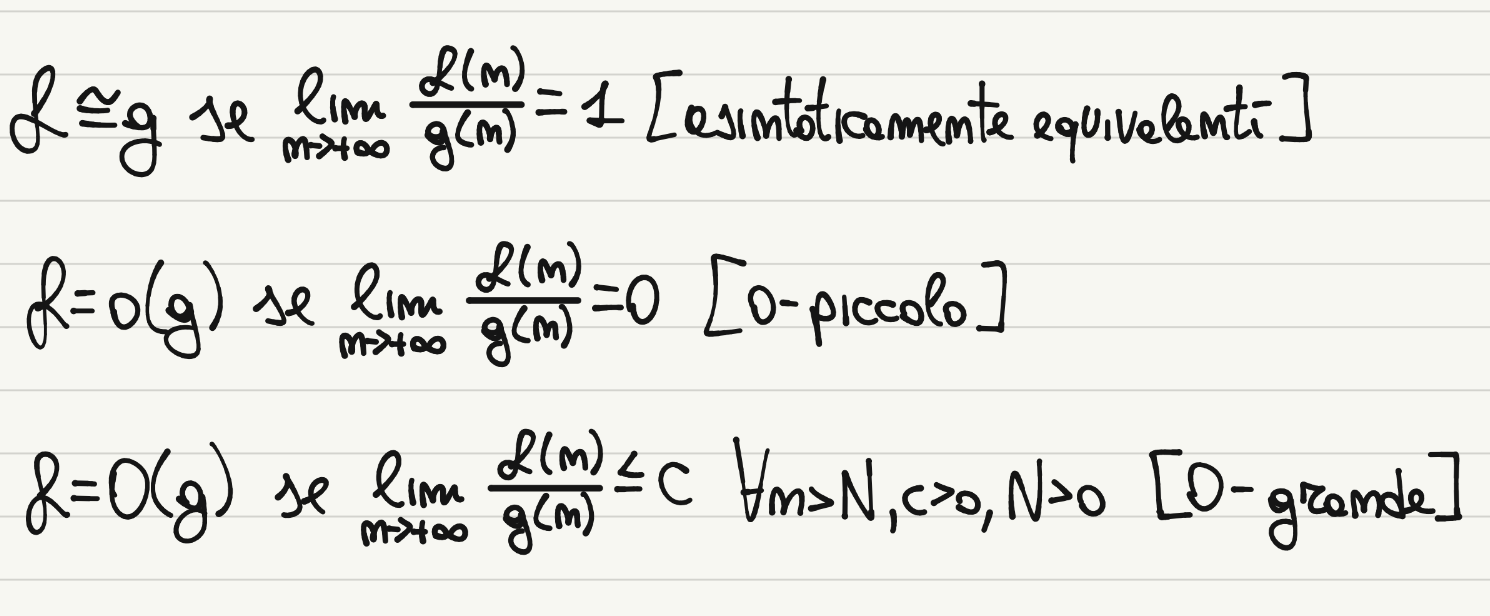 f ≅ g se lim_{n→+∞} f(n)/g(n) = 1 [asintoticamente equivalenti]
f = o(g) se lim_{n→+∞} f(n)/g(n) = 0 [o-piccolo]
f = O(g) se lim_{n→+∞} f(n)/g(n) ≤ c ∀n>N, c>0, N>0 [O-grande]